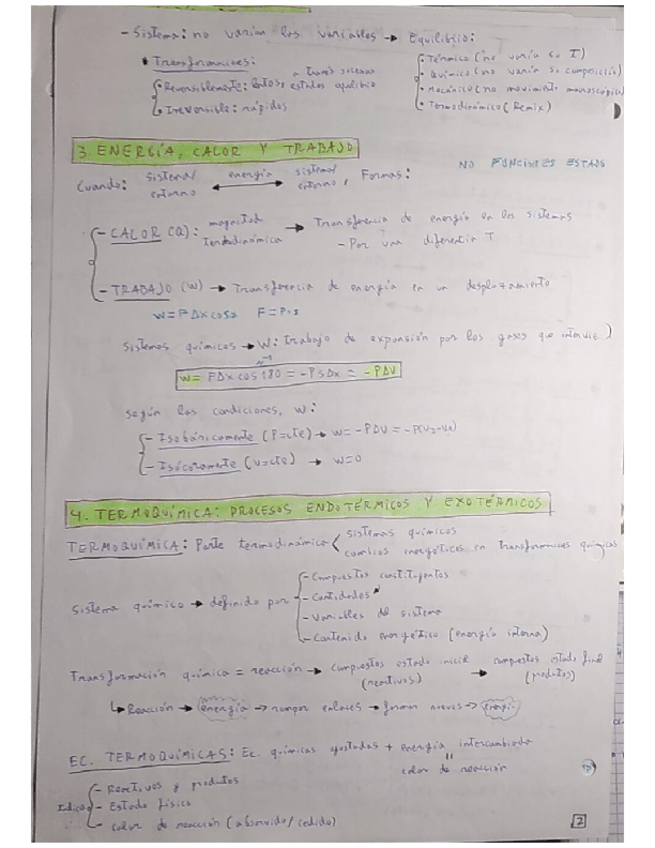 - Sistema: no varian las variables → Equilibrio:
• Transformaciones:
• Térmico (no varía su T)
• Químico (no varía su composición)
• Mecánico (no movimiento macroscópico)
• Termodinámico (Remix)
• Reversiblemente: lentos, estados equilibrio
• Irreversible: rápidos
3. ENERGÍA, CALOR Y TRABAJO
NO FUNCIONES ESTADO
Cuando: sistema/entorno ↔ energía sistema/entorno, Formas:
- CALOR (Q): magnitud termodinámica → Transferencia de energía en los sistemas
- Por una diferencia T
- TRABAJO (W) → Transferencia de energía en un desplazamiento
W = FΔx cosα F = P·s
Sistemas químicos → W: Trabajo de expansión por los gases que intervie)
W = FΔx cos 180 = -PSΔx = -PΔV
Según las condiciones, W:
- Isobáricamente (P=cte) → W = -PΔV = -P(V2-V1)
- Isócoramente (V=cte) → W=0
4. TERMOQUÍMICA: PROCESOS ENDOTÉRMICOS Y EXOTÉRMICOS
TERMOQUÍMICA: Parte termodinámica < sistemas químicos
cambios energéticos en transformaciones químicas
Sistema químico → definido por
- Compuestos constituyentes
- Cantidades
- Variables del sistema
- Contenido energético (energía interna)
Transformación química = reacción → compuestos estado inicial (reactivos) → compuestos estado final (productos)
↳ Reacción → energía → romper enlaces → formar nuevos → energía
EC. TERMOQUÍMICAS: Ec. químicas ajustadas + energía intercambiada
calor de reacción
Indica
- Reactivos y productos
- Estado físico
- calor de reacción (absorvido/cedido)
2